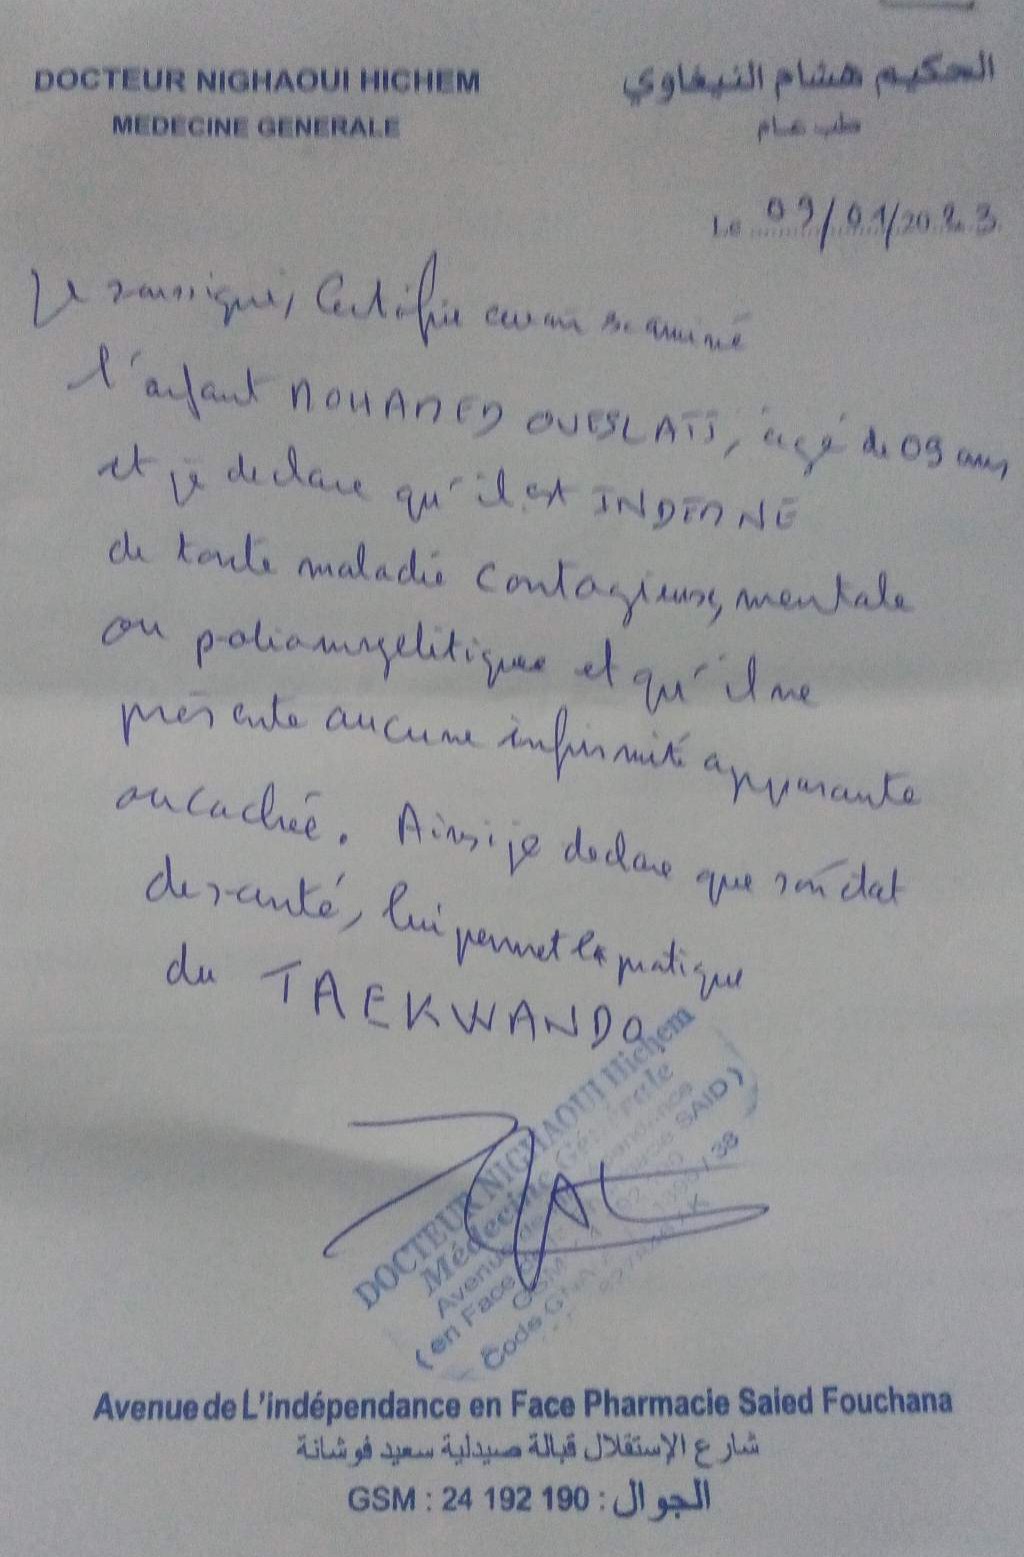 DOCTEUR NIGHAOUI HICHEM
MEDECINE GENERALE
الحكيم هشام النيغاوي
طب عام
Le 09/01/2023
Je soussigné, Certifie avoir examiné
l'enfant MOHAMED OUESLATI, agé de 09 ans
et je declare qu'il est INDEMNE
de toute maladie contagieuse, mentale
ou poliomyelitique et qu'il ne
présente aucune infirmité apparante
ou cachée. Ainsi je declare que son état
de santé, lui permet la pratique
du TAEKWANDO
DOCTEUR NIGHAOUI Hichem
Médecine Générale
Avenue de
(en Face SAID)
GSM
Code
Avenue de L'indépendance en Face Pharmacie Saied Fouchana
شارع الإستقلال قبالة صيدلية سعيد فوشانة
GSM : 24 192 190 : الجوال